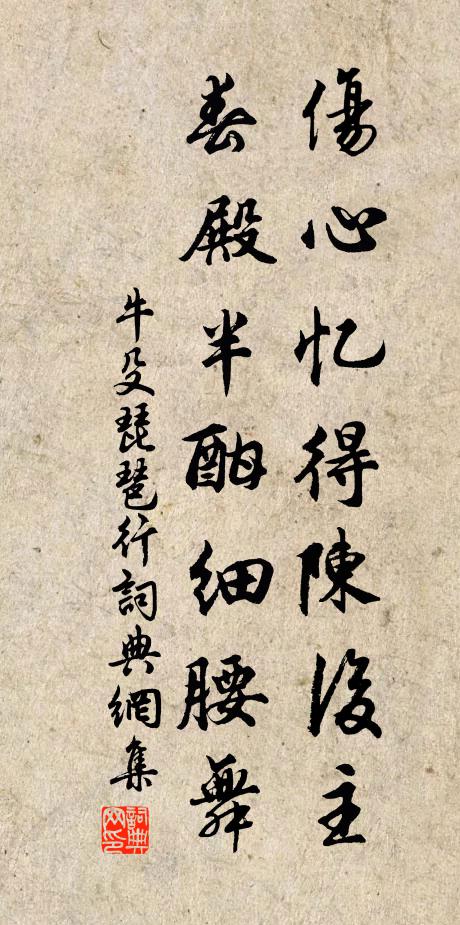 傷心忆得陳後主
春殿半酣細腰舞
牛殳琵琶行詞典網集
詞典网印